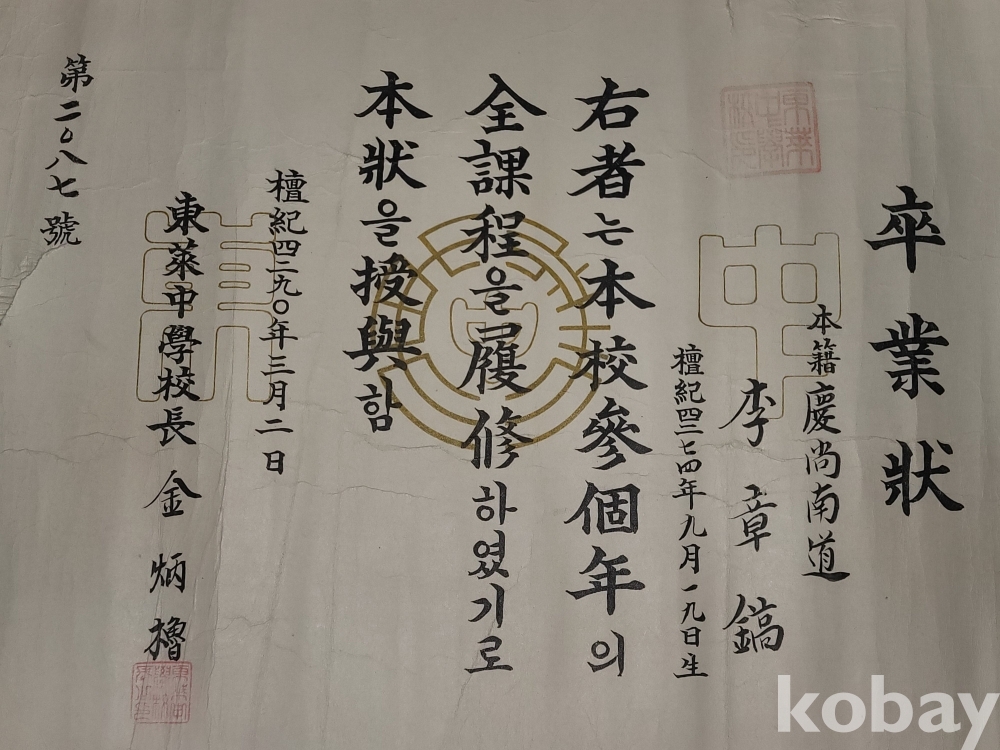 卒業狀
本籍 慶尚南道
李章鎬
檀紀四二七四年九月一九日生
右者는本校參個年의
全課程을履修하였기로
本狀을授與함
檀紀四二九〇年三月二日
東萊中學校長 金炳櫓
第二〇八七號
中
高
kobay